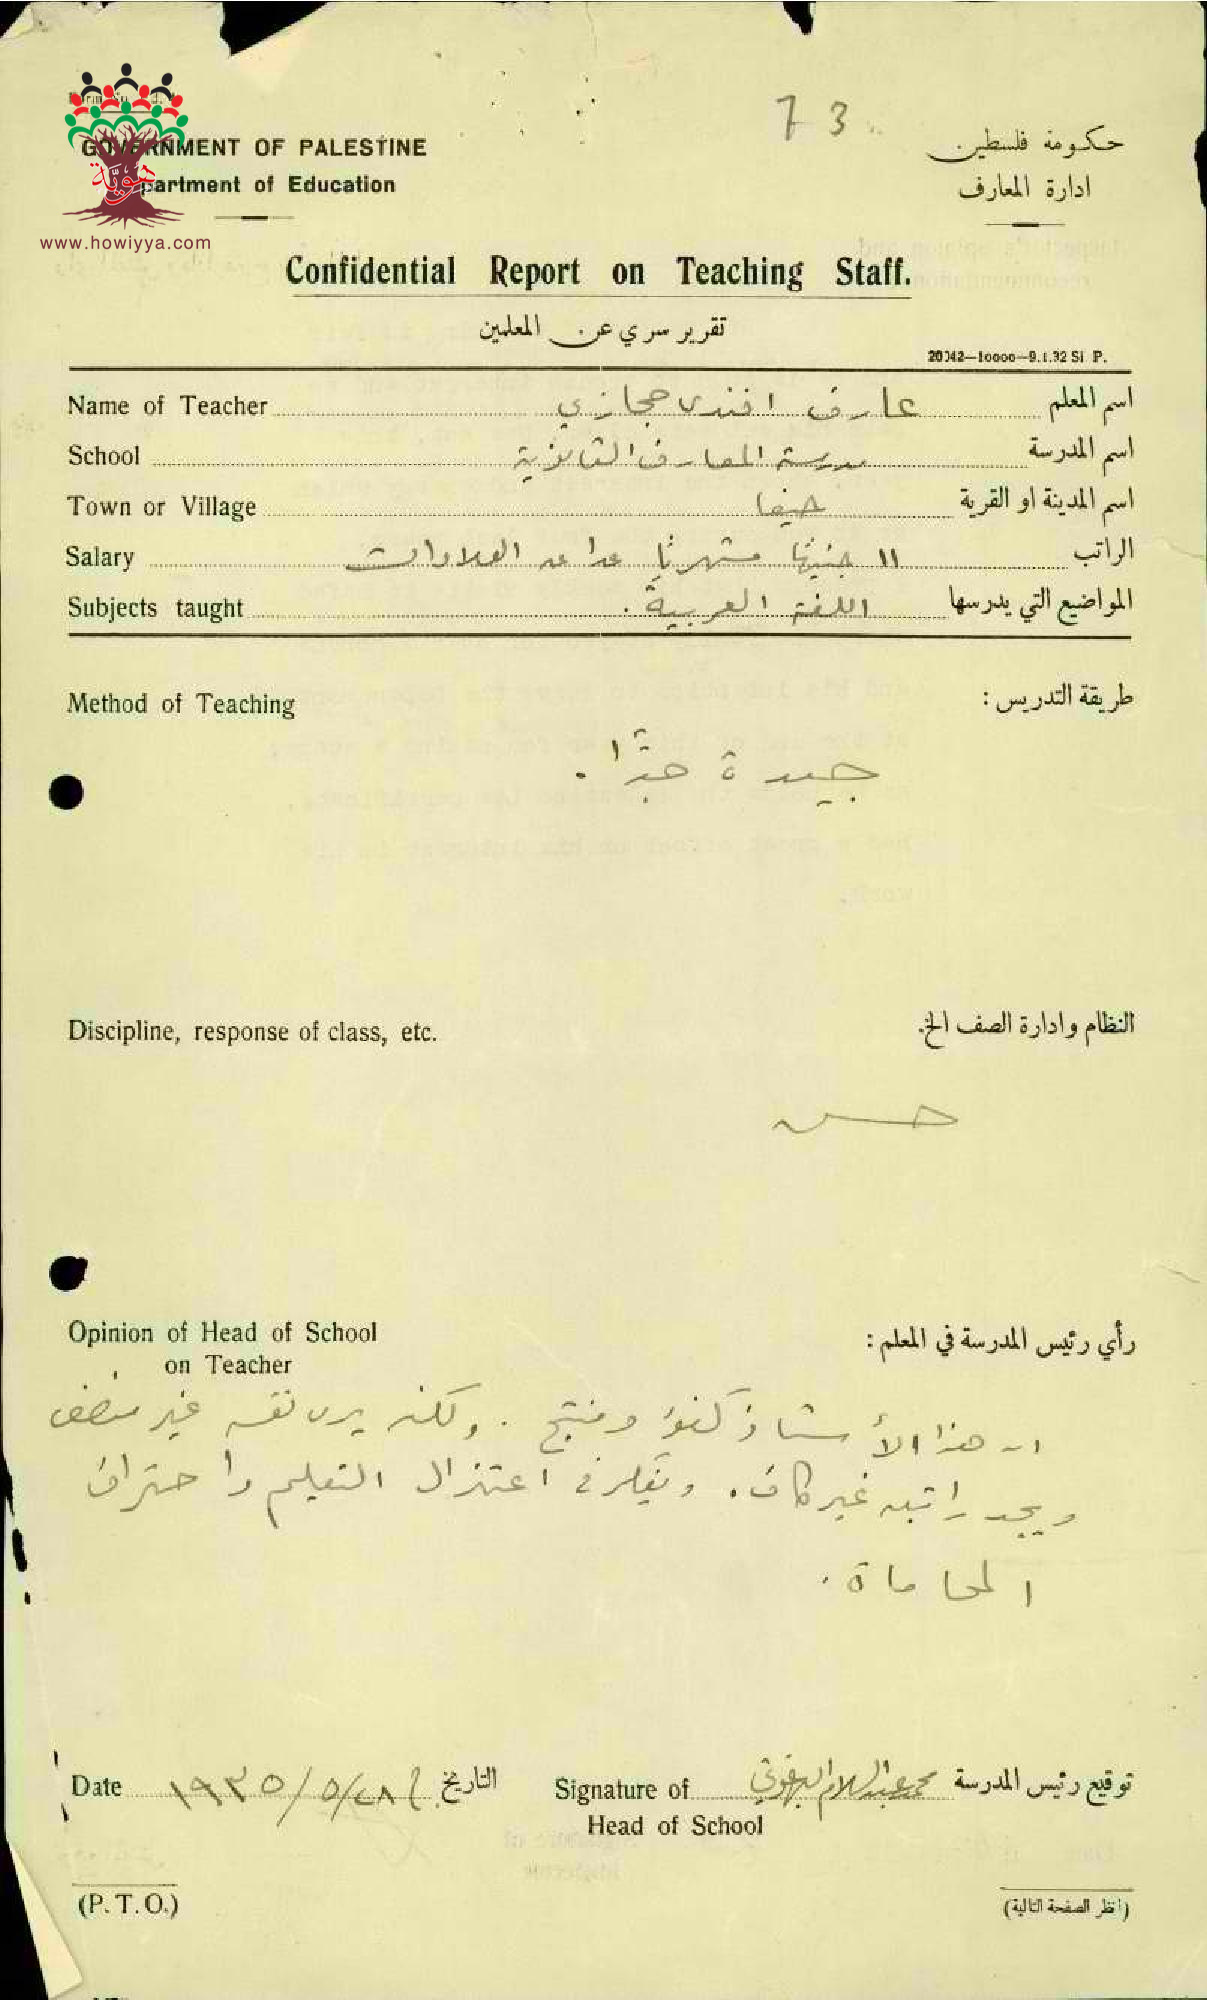 73
GOVERNMENT OF PALESTINE
حكومة فلسطين
Department of Education
ادارة المعارف
هوية
www.howiyya.com
Confidential Report on Teaching Staff.
تقرير سري عن المعلمين
20042—10000—9.1.32 Si P.
Name of Teacher عارف افندي حجازي اسم المعلم
School مدرسة المعارف الثانوية اسم المدرسة
Town or Village حيفا اسم المدينة او القرية
Salary ١١ جنيهًا شهريًا عدا عن العلاوات الراتب
Subjects taught اللغة العربية . المواضيع التي يدرسها
Method of Teaching طريقة التدريس :
جيدة جدًا .
Discipline, response of class, etc. النظام وادارة الصف الخ.
حسن
Opinion of Head of School رأي رئيس المدرسة في المعلم :
on Teacher
ان هذا الأستاذ كفؤ ومنتج . ولكنه يرى نفسه غير منصف
ويجد راتبه غير كاف . ويفكر في اعتزال التعليم واحتراف
المحاماة .
Date ١٩٣٥/٥/٢٨ التاريخ Signature of محمد عبد السلام البرغوثي توقيع رئيس المدرسة
Head of School
(P. T. O.) (انظر الصفحة التالية)